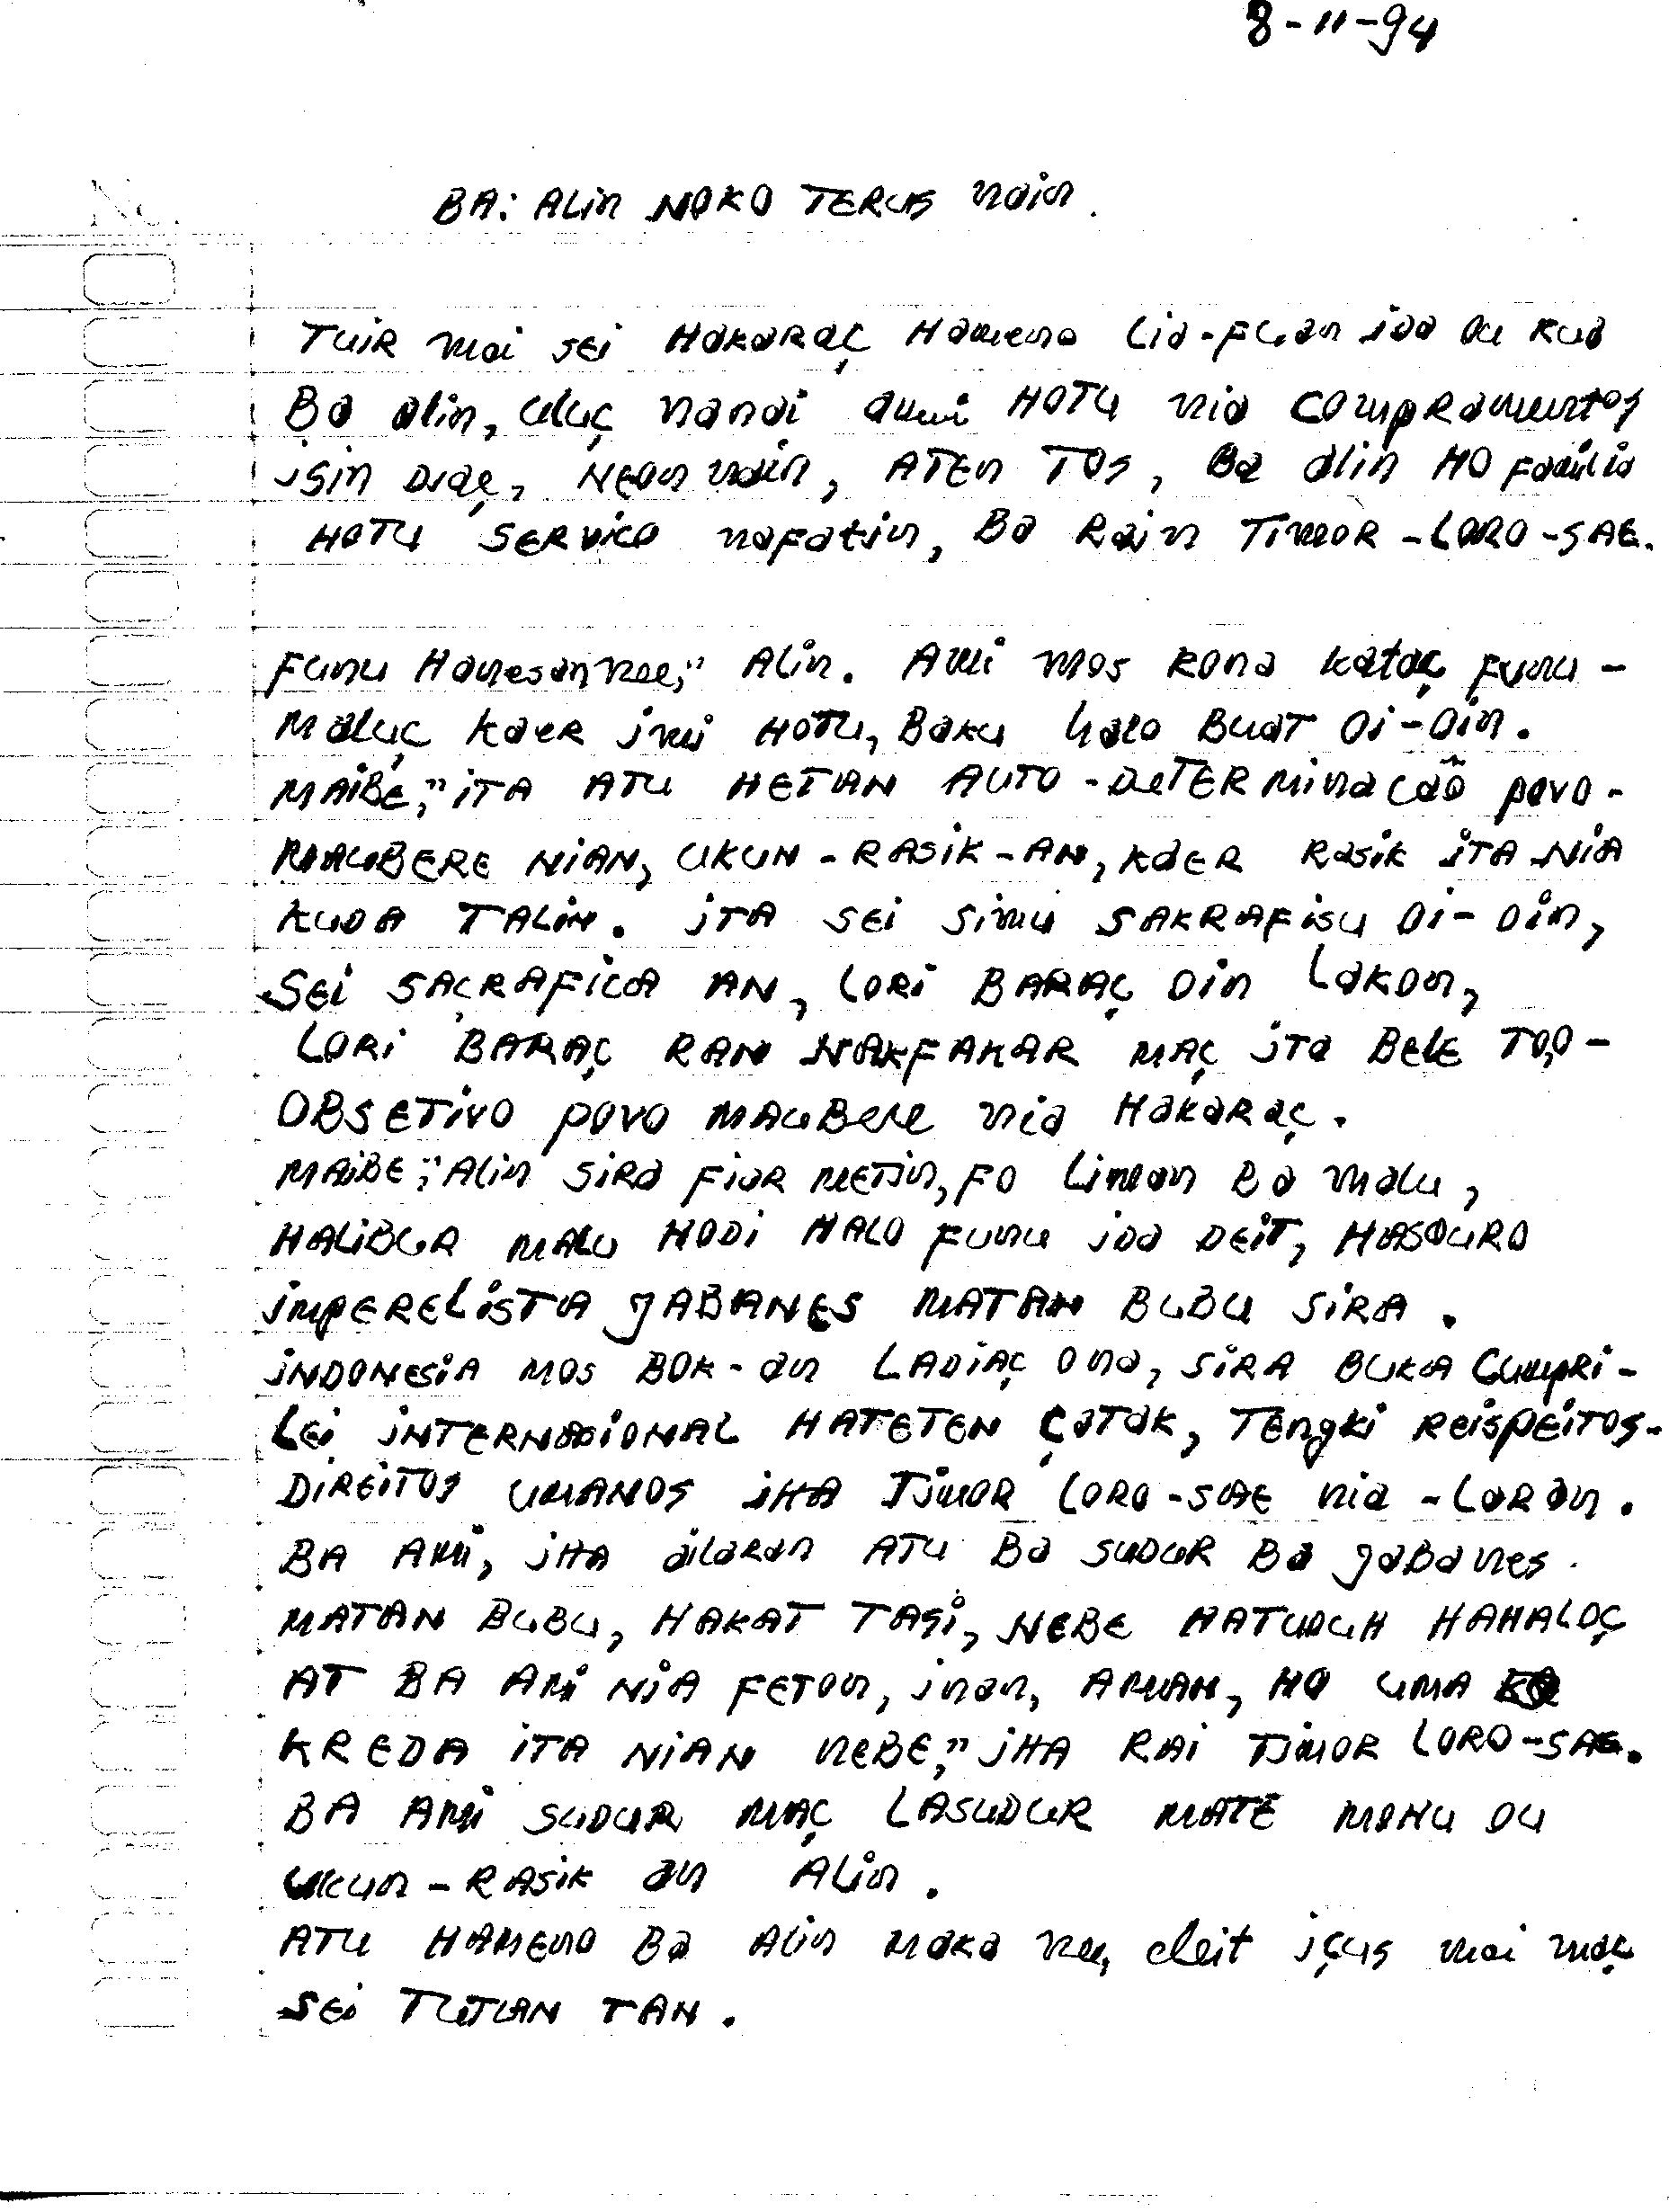 8-11-94
No.
BA: ALin NOKO TERUS nain.
TuiR mai sei HakaRaç Hameno Lia-Fuan ida ou Rua
Ba alin, uluç nanai ami HOTU nia compRamentos
isin Diaç, Neon nain, ATEN TOS, Ba alin HO Familia
HOTU SERVICO nafatin, Ba Rain TimOR-LORO-SAE.
Funu Hanesan nee," Alin. Ami mos Rona kataç Funu-
Maluç kaer imi HOTU, Baku halo BuaT Oi-Oin.
MAIBE," iTA ATU HETAN AUTO-DeTERMinacaõ povo-
MAUBERE NiAN, UKUN-RASiK-AN, KaER Rasik iTA NiA
KUDA TALiN. iTA SEi Simu SAKRAFisu Oi-Oin,
SEi SAÇRAFiCA AN, LORi BARAÇ Oin Lakon,
LORi BARAÇ RAN NAKFAKAR MAÇ iTa BeLE TO,O-
OBSETiVO POVO MAUBeRe nia HakaRaç.
MAiBE," Alin SiRa Fiar METin, FO Liman Ba malu,
HALiBUR MALU HODi HALO Funu ida DEiT, HASOURO
iMPERELiSTA JABANES MATAN BUBU SiRA.
iNDONESiA MOS BOK-an LADiAÇ Ona, SiRA BUKA CumpRi-
LEi iNTERNASiONAL HATETEN ÇATAK, TENgki REispEiTOS-
DiREiTOS UMANOS iHA TimOR LORO-SAE nia-Loran.
BA AMi, iHA ailaran ATU Ba SUDUR Ba JaBanes.
MATAN BUBU, HAKAT TASi, NEBE HATUDUH HAHALOÇ
AT BA AMi NiA FETON, inan, AMAN, HO UMA
KREDA iTA NiAN NEBE," iHA RAi TimOR LORO-SAE.
BA AMi SUDUR MAÇ LASUDUR MATE MOHU OU
UKUN-RASiK an ALin.
ATU HAMENO Ba Alin maka ne, deit içus mai maç
SEi TUTUAN TAN.